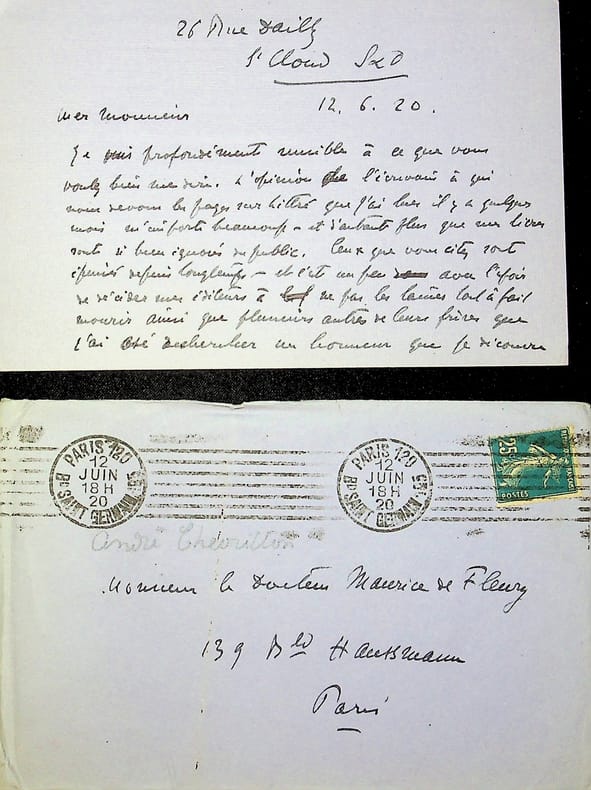 26 Rue Dailly
St Cloud S&O
12. 6. 20.
Cher Monsieur
Je suis profondément sensible à ce que vous
voulez bien me dire. L'opinion de l'écrivain à qui
nous devons les pages sur Littré que j'ai lues il y a quelques
mois m'importe beaucoup - et d'autant plus que mes livres
sont si bien ignorés du public. Ceux que vous citez sont
épuisés depuis longtemps - et c'est un peu avec l'espoir
de décider mes éditeurs à ne pas les laisser tout à fait
mourir ainsi que plusieurs autres de leurs frères que
j'ai été rechercher un honneur que je découvre
PARIS 120
12
JUIN
18H
20
Bd SAINT GERMAIN, 195
PARIS 120
12
JUIN
18H
20
Bd SAINT GERMAIN, 195
25
POSTES
André Chevrillon
Monsieur le Docteur Maurice de Fleury
139 Bld Haussmann
Paris